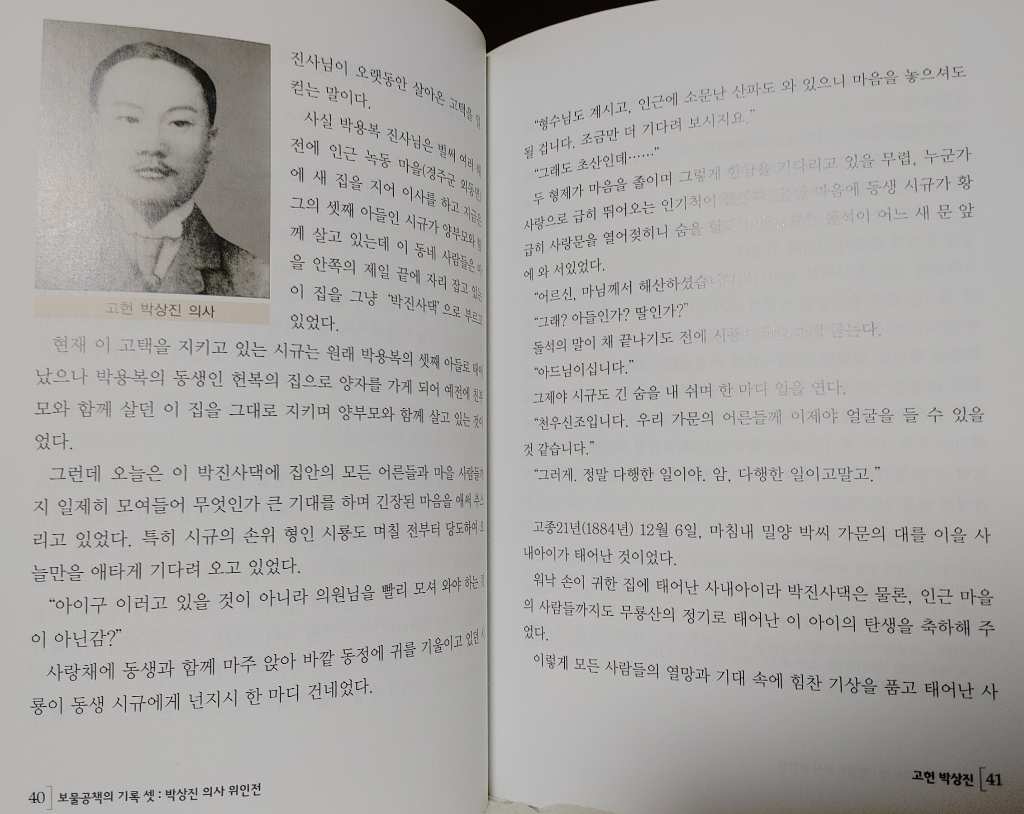 고헌 박상진 의사
진사님이 오랫동안 살아온 고택을 일
컫는 말이다.
사실 박용복 진사님은 벌써 여러 해
전에 인근 녹동 마을(경주군 외동면)
에 새 집을 지어 이사를 하고 지금은
그의 셋째 아들인 시규가 양부모와 함
께 살고 있는데 이 동네 사람들은 마
을 안쪽의 제일 끝에 자리 잡고 있는
이 집을 그냥 ‘박진사댁’으로 부르고
있었다.
현재 이 고택을 지키고 있는 시규는 원래 박용복의 셋째 아들로 태어
났으나 박용복의 동생인 헌복의 집으로 양자를 가게 되어 예전에 친부
모와 함께 살던 이 집을 그대로 지키며 양부모와 함께 살고 있는 것이
었다.
그런데 오늘은 이 박진사댁에 집안의 모든 어른들과 마을 사람들까
지 일제히 모여들어 무엇인가 큰 기대를 하며 긴장된 마음을 애써 추스
리고 있었다. 특히 시규의 손위 형인 시룡도 며칠 전부터 당도하여 오
늘만을 애타게 기다려 오고 있었다.
“아이구 이러고 있을 것이 아니라 의원님을 빨리 모셔 와야 하는
이 아닌감?”
사랑채에 동생과 함께 마주 앉아 바깥 동정에 귀를 기울이고 있던 시
룡이 동생 시규에게 넌지시 한 마디 건네었다.
40] 보물공책의 기록 셋 : 박상진 의사 위인전
“형수님도 계시고, 인근에 소문난 산파도 와 있으니 마음을 놓으셔도
될 겁니다. 조금만 더 기다려 보시지요.”
“그래도 초산인데……”
두 형제가 마음을 졸이며 그렇게 한참을 기다리고 있을 무렵, 누군가
사랑으로 급히 뛰어오는 인기척이 마음에 동생 시규가 황
급히 사랑문을 열어젖히니 숨을 돌석이 어느 새 문 앞
에 와 서있었다.
“어르신, 마님께서 해산하셨습니다.”
“그래? 아들인가? 딸인가?”
돌석의 말이 채 끝나기도 전에 시룡이 묻는다.
“아드님이십니다.”
그제야 시규도 긴 숨을 내 쉬며 한 마디 입을 연다.
“천우신조입니다. 우리 가문의 어른들께 이제야 얼굴을 들 수 있을
것 같습니다.”
“그러게. 정말 다행한 일이야. 암, 다행한 일이고말고.”
고종21년(1884년) 12월 6일, 마침내 밀양 박씨 가문의 대를 이을 사
내아이가 태어난 것이었다.
워낙 손이 귀한 집에 태어난 사내아이라 박진사댁은 물론, 인근 마을
의 사람들까지도 무룡산의 정기로 태어난 이 아이의 탄생을 축하해 주
었다.
이렇게 모든 사람들의 열망과 기대 속에 힘찬 기상을 품고 태어난 사
고헌 박상진 [41